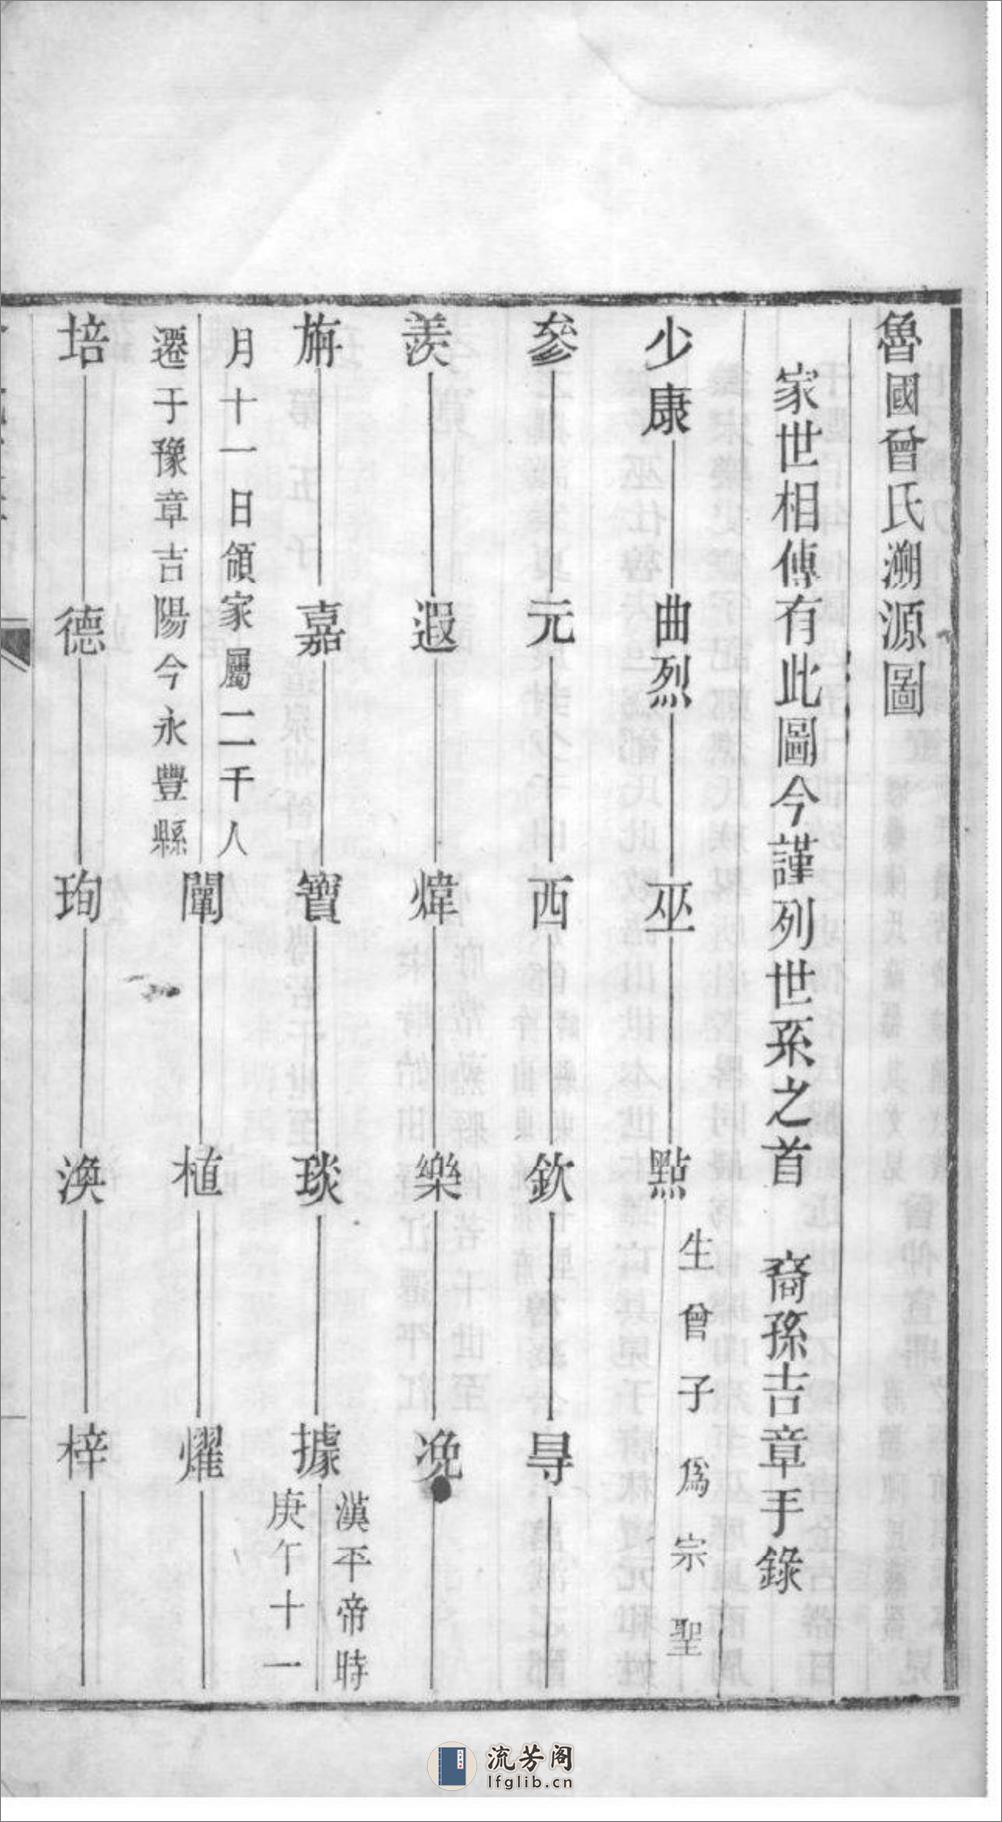 魯國曾氏溯源圖
家世相傳有此圖今謹列世系之首 裔孫吉章手錄
少康 曲烈 巫 點 生曾子爲宗聖
參 元 西 欽 尋
羨 遐 煒 樂 浼
旃 嘉 寶 琰 據 漢平帝時庚午十一
月十一日領家屬二千人
遷于豫章吉陽今永豐縣
闡 植 燿
培 德 珣 渙 梓
流芳阁
lfglib.cn